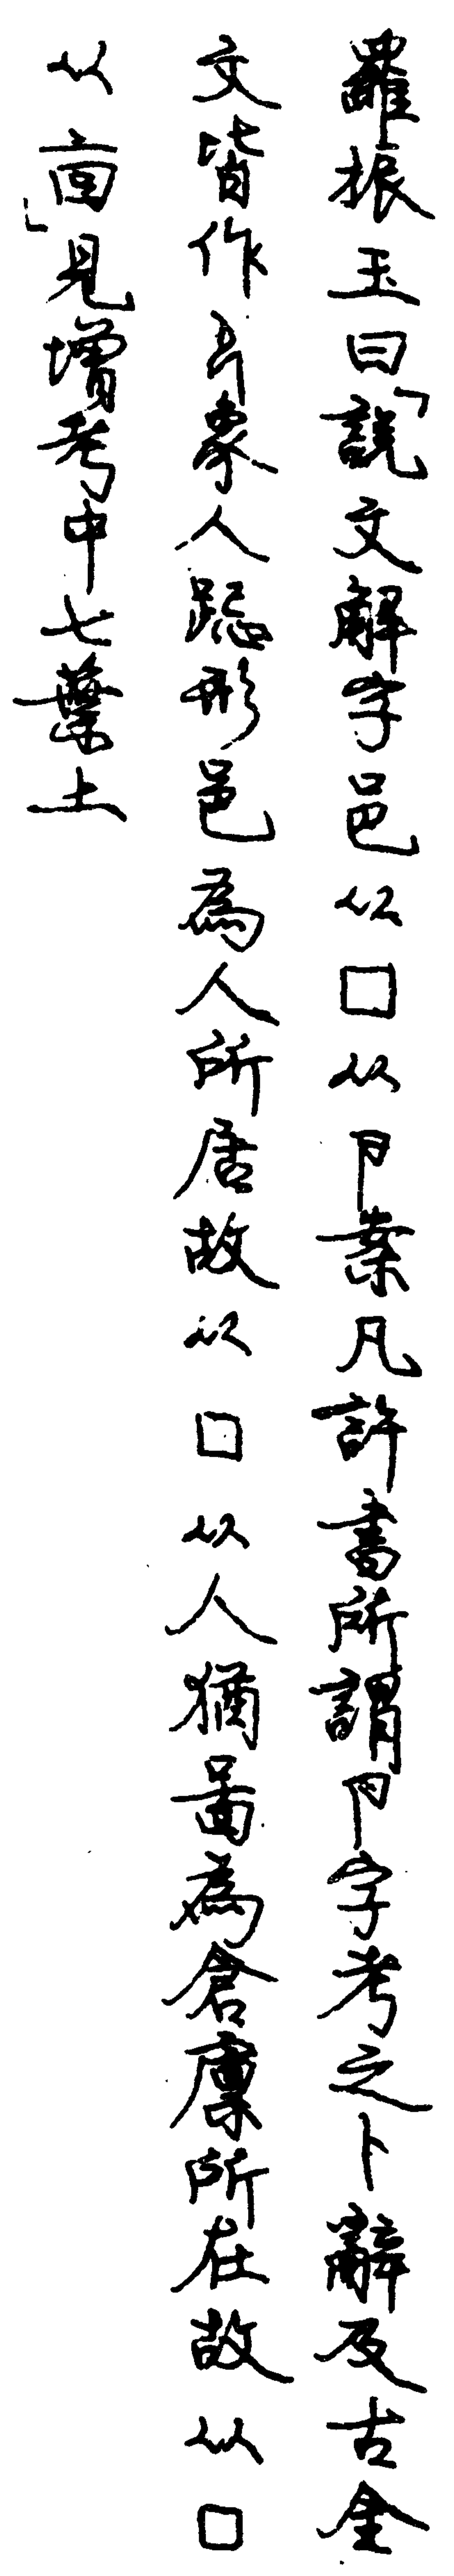 羅振玉曰「說文解字邑从囗从卪案凡許書所謂卪字考之卜辭及古金
文皆作象人跽形邑為人所居故从囗从人猶啚為倉廩所在故从囗
从㐭」見增考中七葉上